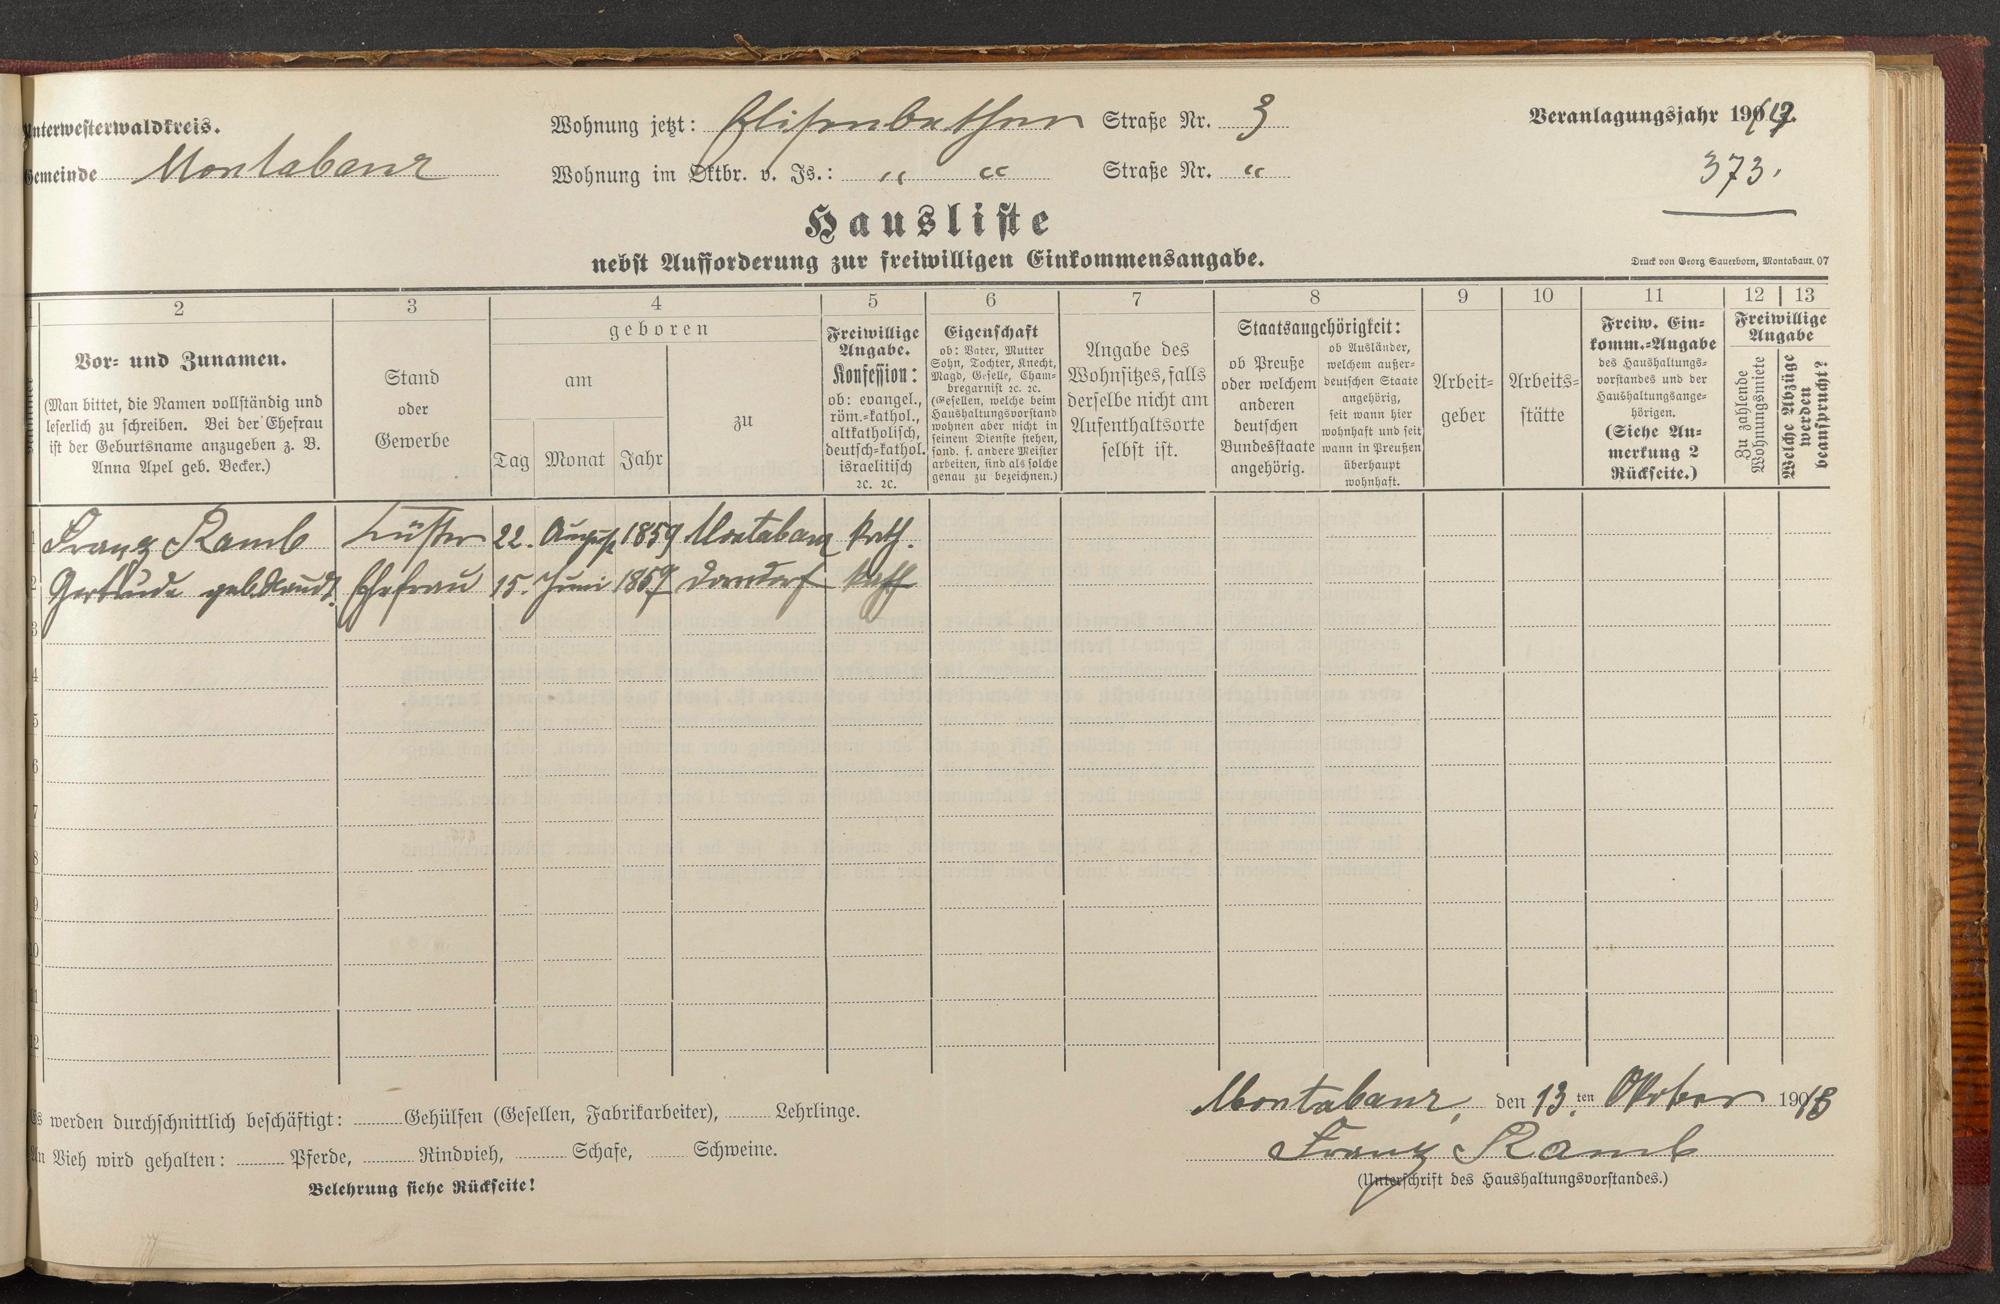 Unterwesterwaldkreis.
Gemeinde Montabaur
Wohnung jetzt: Elisenbethen Straße Nr. 3
Wohnung im Oktbr. v. Js.: " " Straße Nr. "
Veranlagungsjahr 190
373.
Hausliste
nebst Aufforderung zur freiwilligen Einkommensangabe.
Druck von Georg Sauerborn, Montabaur. 07
2
Vor- und Zunamen.
(Man bittet, die Namen vollständig und
leserlich zu schreiben. Bei der Ehefrau
ist der Geburtsname anzugeben z. B.
Anna Apel geb. Becker.)
3
Stand
oder
Gewerbe
4
geboren
am
Tag Monat Jahr
zu
5
Freiwillige
Angabe.
Konfession:
ob: evangel.,
röm.-kathol.,
altkatholisch,
deutsch-kathol.
israelitisch
2c. 2c.
6
Eigenschaft
ob: Vater, Mutter
Sohn, Tochter, Knecht,
Magd, Geselle, Cham-
bregarnist 2c. 2c.
(Gesellen, welche beim
Haushaltungsvorstand
wohnen aber nicht in
seinem Dienste stehen,
sond. f. andere Meister
arbeiten, sind als solche
genau zu bezeichnen.)
7
Angabe des
Wohnsitzes, falls
derselbe nicht am
Aufenthaltsorte
selbst ist.
8
Staatsangehörigkeit:
ob Preuße
oder welchem
anderen
deutschen
Bundesstaate
angehörig.
ob Ausländer,
welchem außer-
deutschen Staate
angehörig,
seit wann hier
wohnhaft und seit
wann in Preußen
überhaupt
wohnhaft.
9
Arbeit-
geber
10
Arbeits-
stätte
11
Freiw. Ein-
komm.-Angabe
des Haushaltungs-
vorstandes und der
Haushaltungsange-
hörigen.
(Siehe An-
merkung 2
Rückseite.)
12 13
Freiwillige
Angabe
Zu zahlende
Wohnungsmiete
Welche Abzüge
werden
beansprucht?
1 Franz Kamb Küster 22. August 1859 Montabaur kath.
2 Gertrude geb. Ehefrau 15. Juni 1859 Dorndorf kath
3
4
5
6
7
8
9
10
11
12
Es werden durchschnittlich beschäftigt: Gehülfen (Gesellen, Fabrikarbeiter), Lehrlinge.
An Vieh wird gehalten: Pferde, Rindvieh, Schafe, Schweine.
Belehrung siehe Rückseite!
Montabaur, den 13. ten Oktober 190
Franz Kamb
(Unterschrift des Haushaltungsvorstandes.)